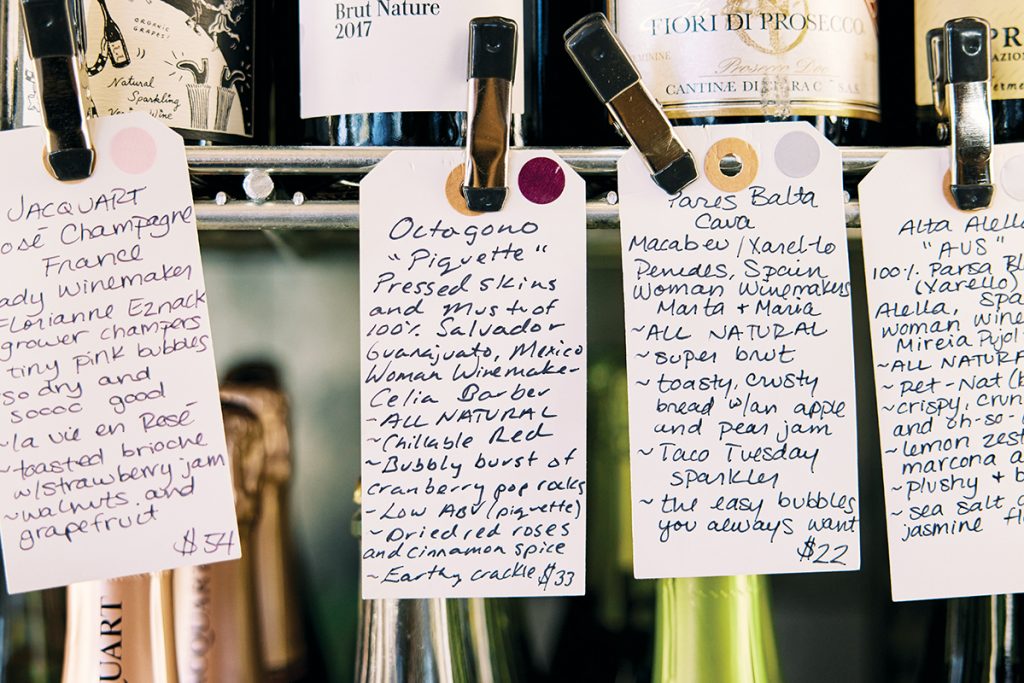 ORGANIC
GRAPES!
Natural
Sparkling
Wine
Brut Nature
2017
FIORI DI PROSECCO
Prosecco Doc
CANTINÆ DI
JACQUART
Rosé Champagne
France
Lady Winemaker
Florianne Eznack
grower champers
tiny pink bubbles
so dry and
soooo good
~la vie en Rosé
~toasted brioche
w/strawberry jam
~walnuts and
grapefruit
$54
Octagono
"Piquette"
Pressed skins
and must of
100% Salvador
Guanajuato, Mexico
Woman Winemaker-
Celia Barber
-ALL NATURAL
~Chillable Red
~Bubbly burst of
cranberry pop rocks
~Low ABV (piquette)
~Dried red roses
and cinnamon spice
~Earthy crackle $33
Pares Balta
Cava
Macabeu/Xarel-lo
Penedes, Spain
Woman Winemakers
Marta + Maria
~ALL NATURAL
~super brut
~toasty, crusty
bread w/an apple
and pear jam
~Taco Tuesday
sparkler
~the easy bubbles
you always want
$22
Alta Alella
"AUS"
100% Pansa Bl
(Xarello)
Alella, Spa
Woman Wine
Mireia Pujol
~ALL NATURA
~pet-Nat (b
~crispy, crun
and oh-so-
~lemon zest
marcona a
~plushy + b
~sea salt
jasmine fl
QUART
CQUART